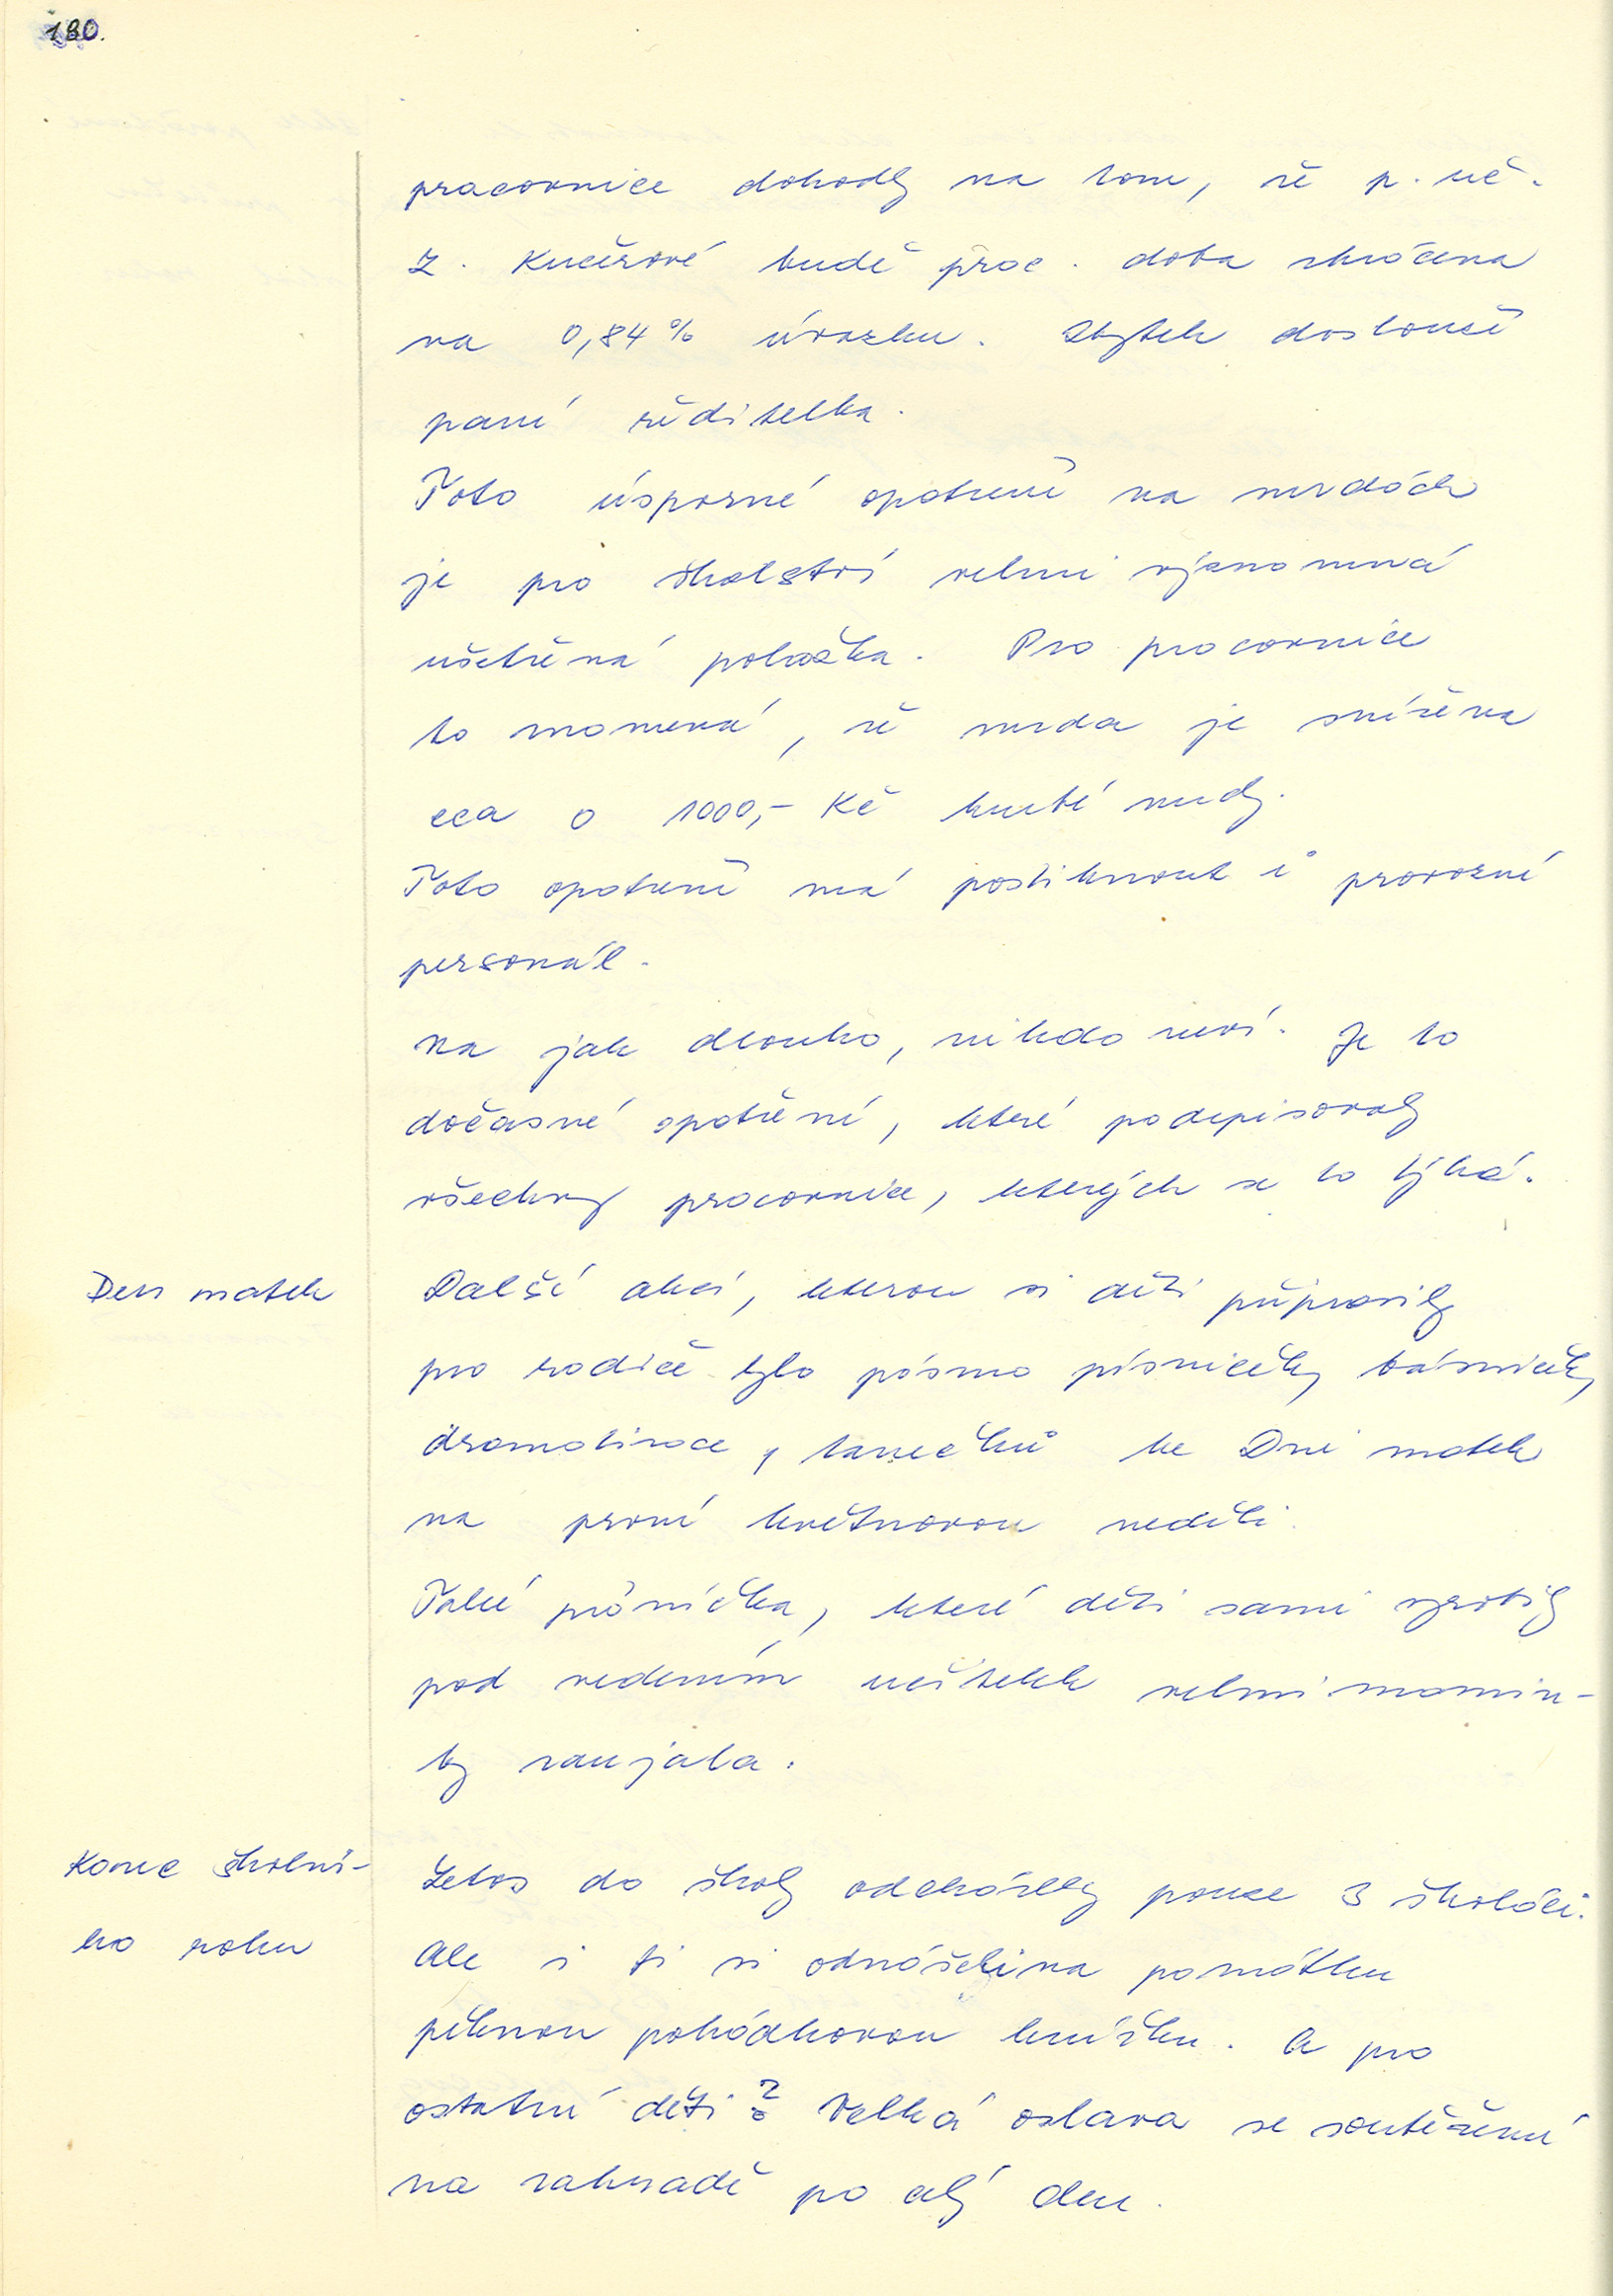 180.
pracovnice dohodly na tom, že p. uč.
Z. Kučerové bude prac. doba zkrácena
na 0,84% úvazku. Zbytek doslouží
paní ředitelka.
Toto úsporné opatření na mzdách
je pro školství velmi významná
ušetřená položka. Pro pracovnice
to znamená, že mzda je snížena
cca o 1000,- Kč hrubé mzdy.
Toto opatření má postihnout i provozní
personál.
Na jak dlouho, nikdo neví. Je to
dočasné opatření, které podepisovaly
všechny pracovnice, kterých se to týká.
Den matek
Další akcí, kterou si děti připravily
pro rodiče bylo pásmo písniček, básniček,
dramatizace, tanečků ke Dni matek
na první květnovou neděli.
Také přáníčka, které děti sami vyrobily
pod vedením učitelek velmi mamin-
ky zaujala.
Konec školní-
ho roku
Letos do školy odcházely pouze 3 školáci.
Ale i ti si odnášeli na památku
pěknou pohádkovou knížku. A pro
ostatní děti? Velká oslava se soutěžemi
na zahradě po celý den.